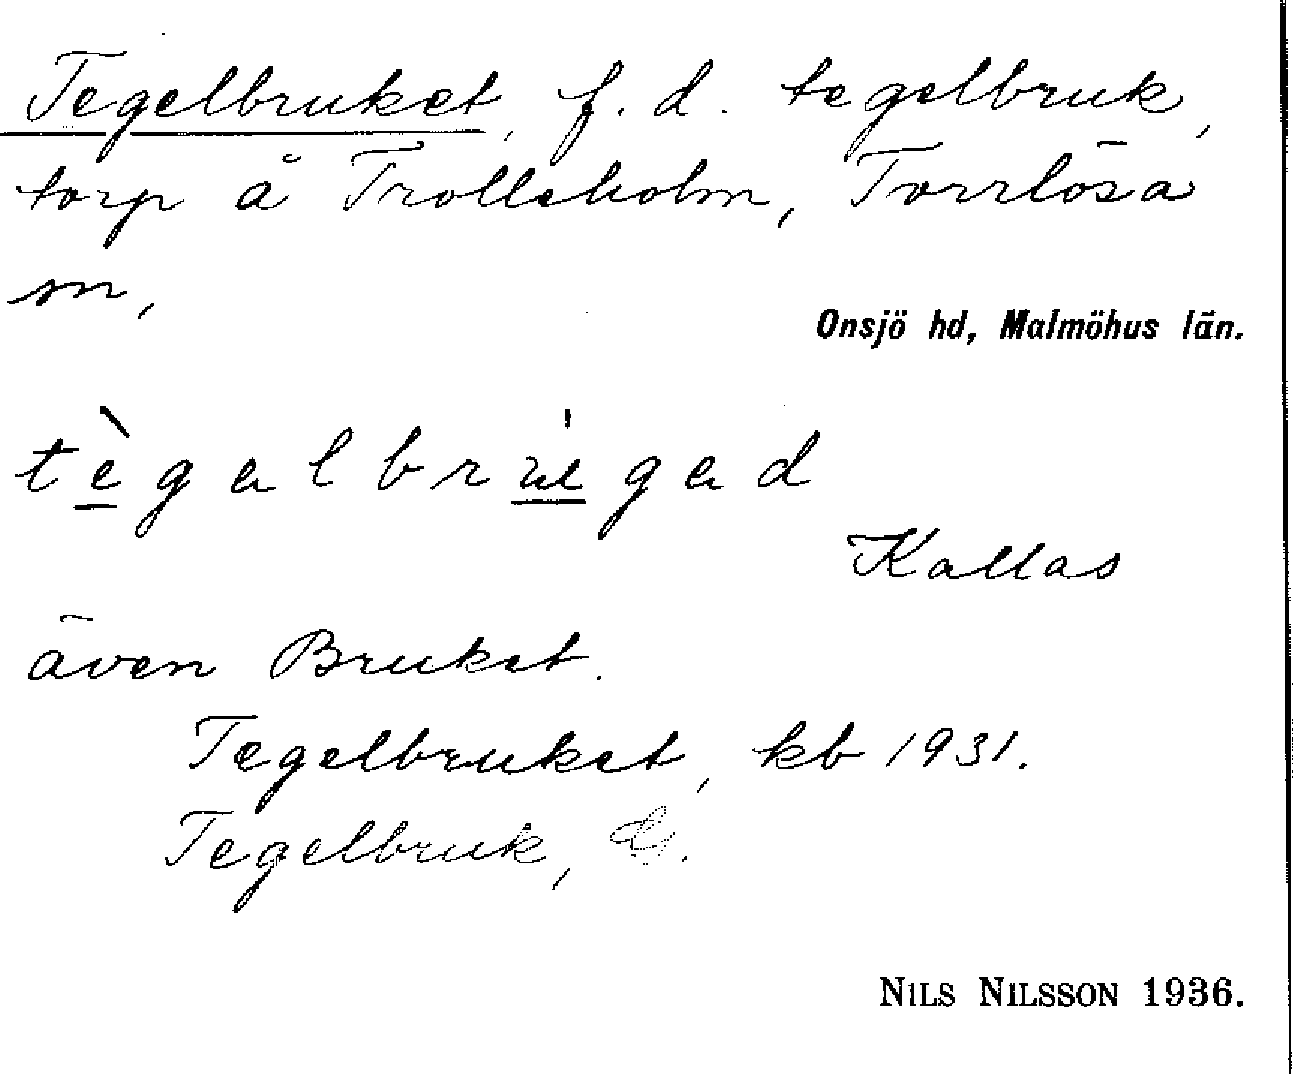 Tegelbruket, f. d. tegelbruk,
torp å Trolleholm, Torrlösa
sn,
Onsjö hd, Malmöhus län.
tègəlbrúgəd
Kallas
även Bruket.
Tegelbruket, kb 1931.
Tegelbruk,
NILS NILSSON 1936.